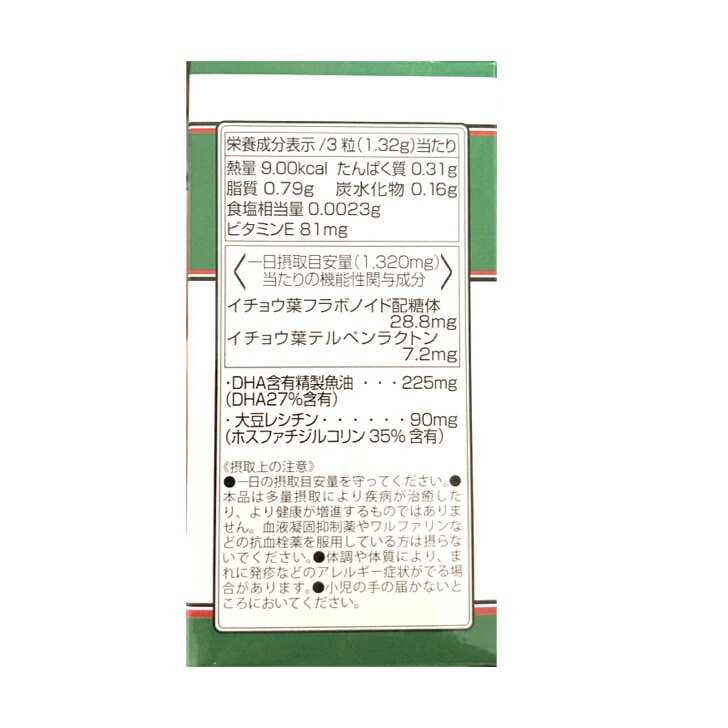 栄養成分表示/3粒(1.32g)当たり
熱量 9.00kcal たんぱく質 0.31g
脂質 0.79g 炭水化物 0.16g
食塩相当量 0.0023g
ビタミンE 81mg
〈一日摂取目安量(1,320mg)
当たりの機能性関与成分〉
イチョウ葉フラボノイド配糖体
28.8mg
イチョウ葉テルペンラクトン
7.2mg
・DHA含有精製魚油・・・225mg
(DHA27%含有)
・大豆レシチン・・・・・・90mg
(ホスファチジルコリン35%含有)
《摂取上の注意》
●一日の摂取目安量を守ってください。●
本品は多量摂取により疾病が治癒した
り、より健康が増進するものではありま
せん。血液凝固抑制薬やワルファリンな
どの抗血栓薬を服用している方は摂らな
いでください。●体調や体質により、ま
れに発疹などのアレルギー症状がでる場
合があります。●小児の手の届かないと
ころにおいてください。